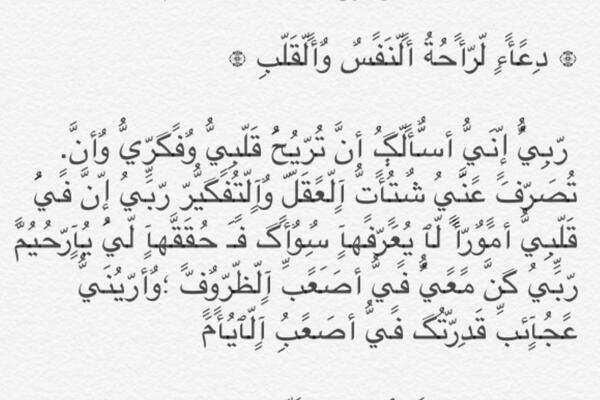 ۞ دِعًٌآءٍ لّرٌّآحٌةّ آلَنَفَسٌ وٌآلَقَلَبِ ۞
رَبِيٌّ إنَيٌّ أسٌّألَگٌ أنَّ تٌرَيٌحٌ قَلَبِيٌّ وٌفَگرَيٌّ وٌأنَّ.
تٌصَرَفَ عًنَيٌّ شٌتٌآتٌ آلَعًقَلَّ وٌآلَتٌفَگيٌرَّ رَبِيٌّ إنَّ فَيٌّ
قَلَبِيٌّ أمًوٌرَآً لَآ يٌعًرَفَهآ سٌوٌآگ فَـ حٌقَقَهآ لَيٌّ يٌآرَحٌيٌمً
رَبِيٌّ گنَّ مًعًيٌّ فَيٌّ أصَعًبِّ آلَظّرَوٌفَّ ؛وٌأرَيٌنَيٌّ
عًجٌآئبِّ قَدِرَتٌگ فَيٌّ أصَعًبِّ آلَآيٌآمً